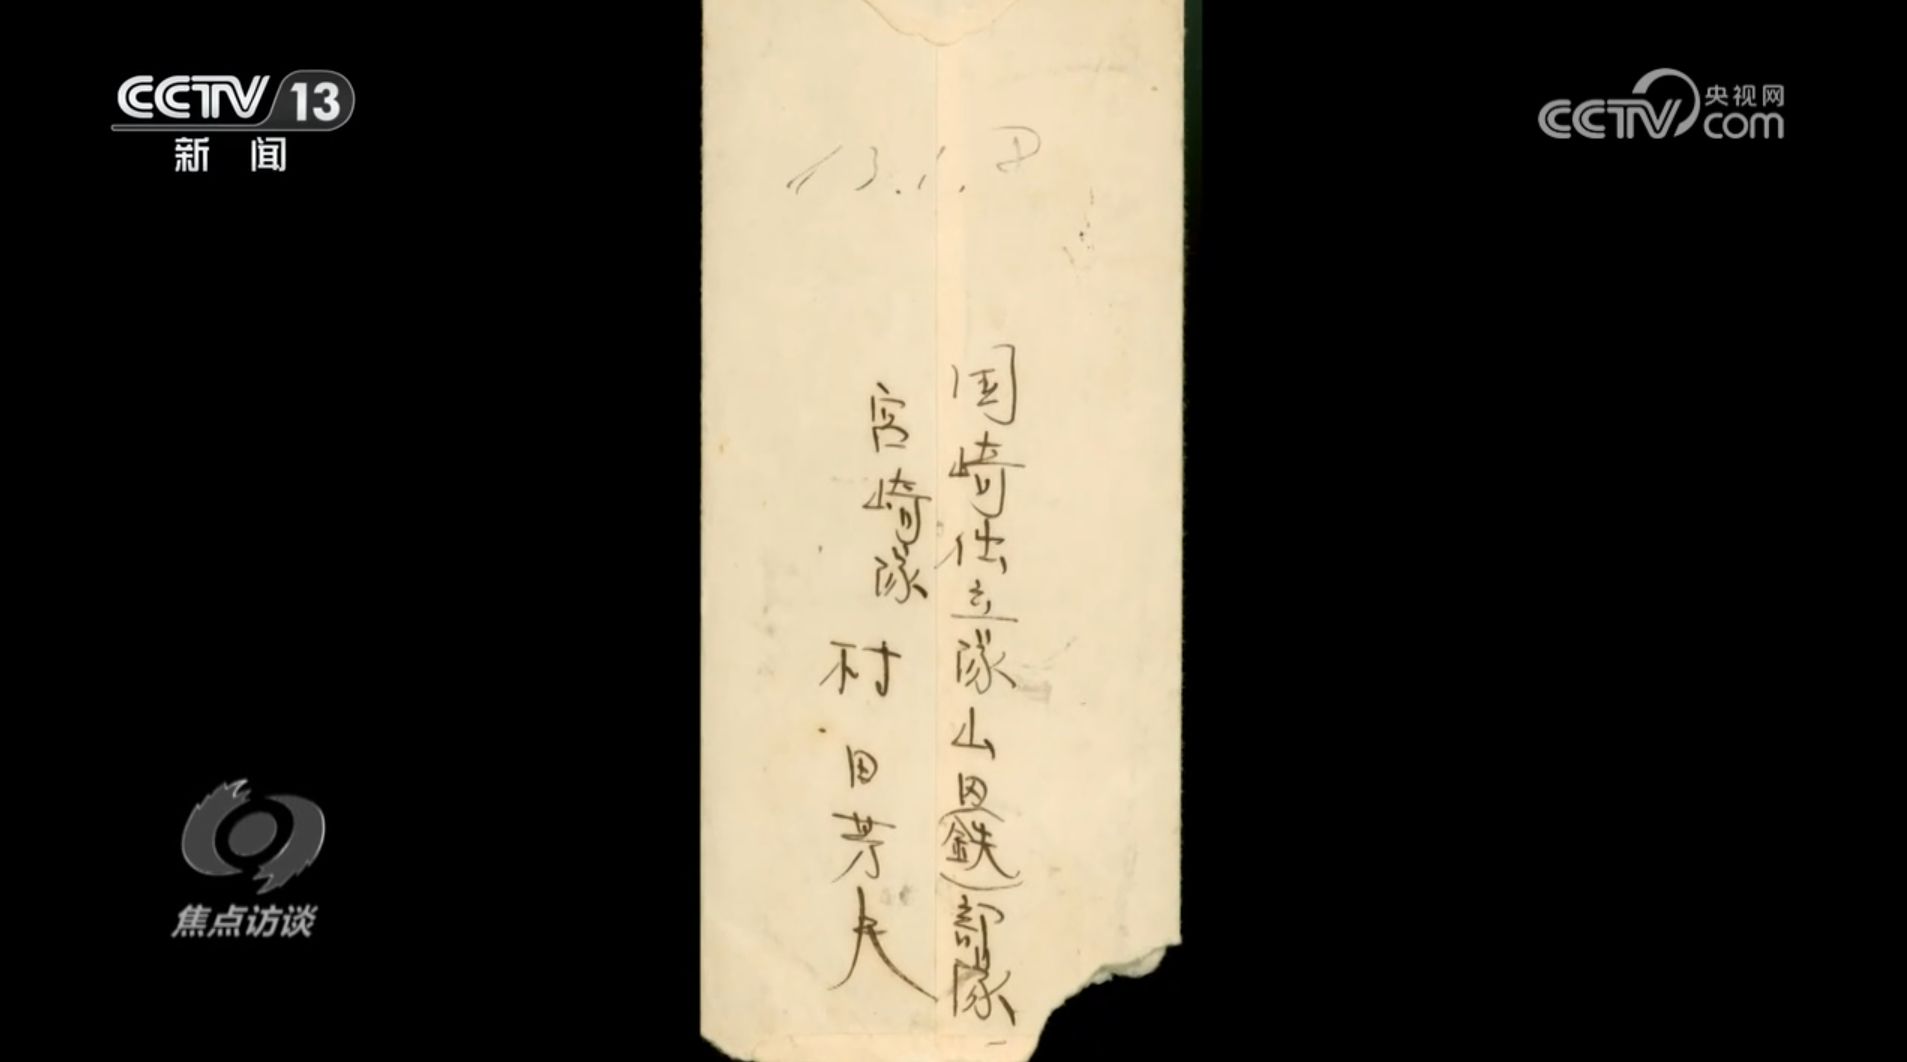 CCTV 13
新闻
央视网
CCTV com
13.1.8
国崎仕立隊山田(鉄)部隊
宮崎隊 村田芳夫
焦点访谈